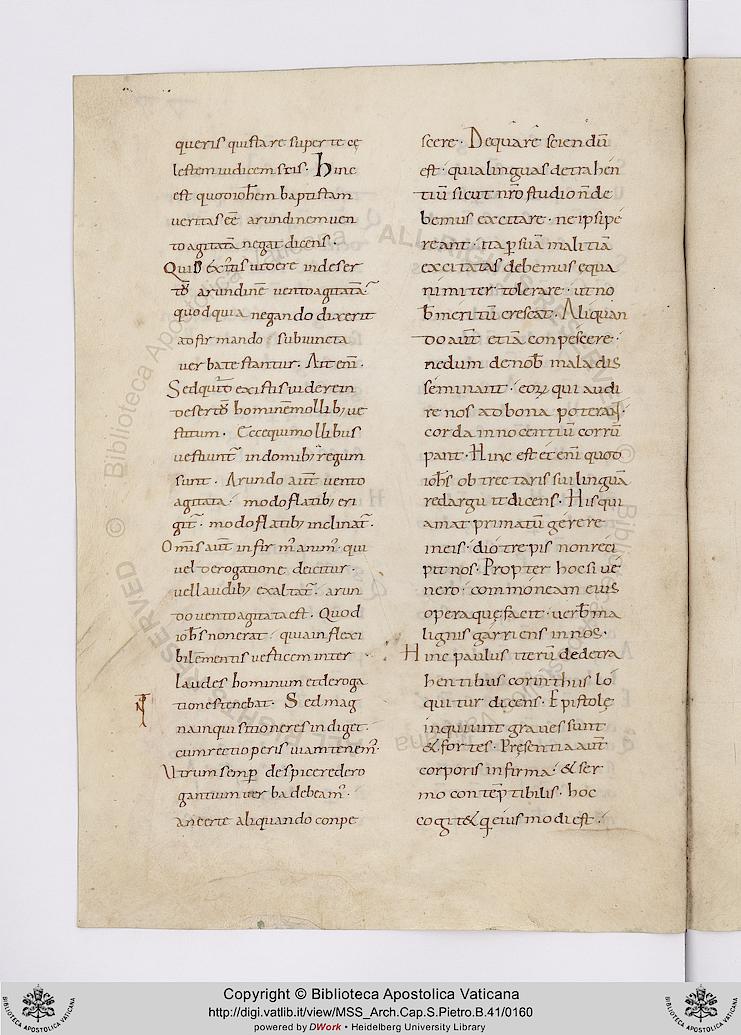 queris quistare super te cę
lestem iudicem scis. hinc
est quod ioħem baptistam
veritas eē arundinem ven
to agitatā negat dicens.
Quid existis videre in deser
tō arundinē vento agitatā.
quod quia negando dixerit
adfirmando subiuncta
verba testantur. Ait eni.
Sed quid existis videre in
deserto hominem mollib; ve
stitum. Ecce qui mollibus
vestiunt in domib; regum
sunt. Arundo aut vento
agitata. modo flatib; eri
git. modo flatib; inclinat.
Omis aut infirm anim. qui
vel derogatione deicitur.
vel laudib; exaltat. arun
do vento agitata est. Quod
iohs non erat. quia inflexi
bilem mentis verticem inter
laudes hominum et deroga
tiones tenebat. Sed mag
na inquisitione res indiget.
cum recti operis viam tenem.
Utrum semp despicere dero
gantium verba debeam.
an certe aliquando conpe
scere. De qua re sciendū
est. quia linguas detrahen
tiū sicut nro studio n de
bemus excitare. ne ipsi pe
reant. ita p suā malitiā
excitatas debemus equa
nimiter tolerare. ut no
b meritū crescat. Aliquan
do aut etiā conpescere.
ne dum de nob mala dis
seminant. eor qui audi
re nos ad bona poterant.
corda innocentiū corrū
pant. Hinc est et eni quod
iohs obtrectatoris sui linguā
redarguit dicens. His qui
amat primatū gerere
in eis. diotrepis non reci
pit nos. Propter hoc si ve
nero. commoneam eius
opera quę facit. verb ma
lignis garriens in nos.
Hinc paulus iterū de detra
hentibus corinthiis lo
quitur dicens. Epistolę
inquiunt graves sunt
& fortes. Presentia aut
corporis infirma. & ser
mo contēptibilis. hoc
cogit& q eiusmodi est.
© Biblioteca Apostolica Vaticana ALL RIGHTS RESERVED
BIBLIOTECA APOSTOLICA VATICANA
Copyright © Biblioteca Apostolica Vaticana
http://digi.vatlib.it/view/MSS_Arch.Cap.S.Pietro.B.41/0160
powered by DWork • Heidelberg University Library
BIBLIOTECA APOSTOLICA VATICANA